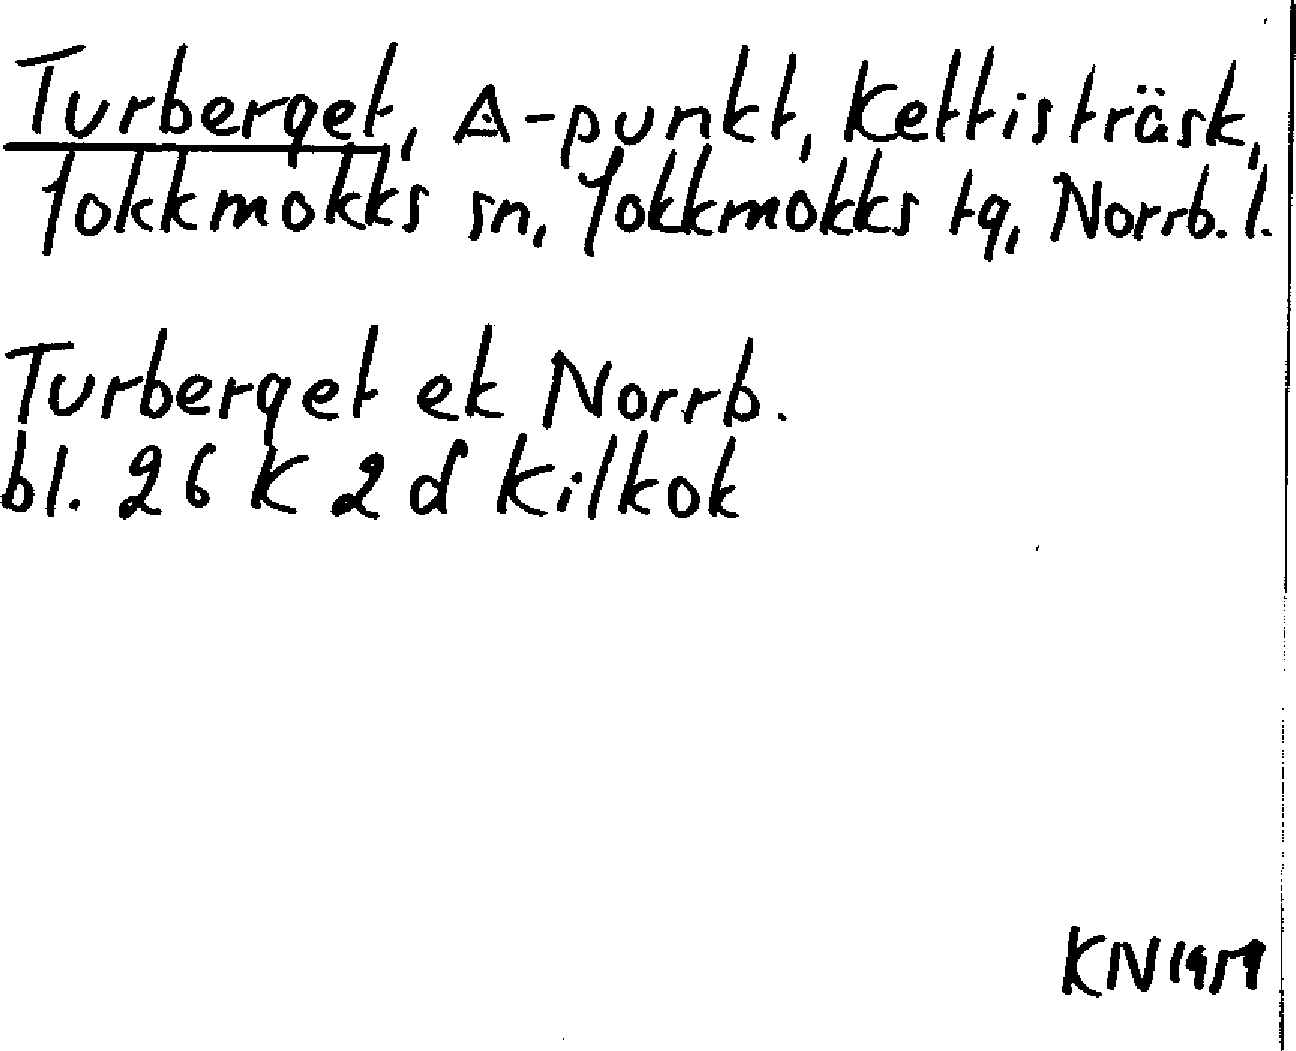 Turberget, △-punkt, Kettisträsk,
Jokkmokks sn, Jokkmokks tg, Norrb. l.
Turberget ek Norrb.
bl. 26 K 2 d Kilkok
KN 1959